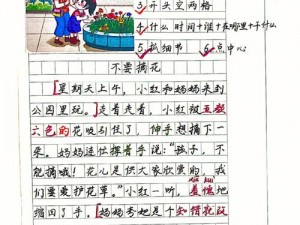 3 开头空两格
4 什么时间+谁+在哪里+干什么
5 抓细节 6 点中心
不要摘花
星期天上午，小红和妈妈来到
公园里玩。走着走着，小红被五颜
六色的花吸引住了，伸手想摘下一
朵。妈妈连忙摆着手说：“孩子，不
能摘哦！花儿是供大家欣赏的，我
们要爱护花草。”小红一听，羞愧地
缩回了手。妈妈夸她是个知错就改